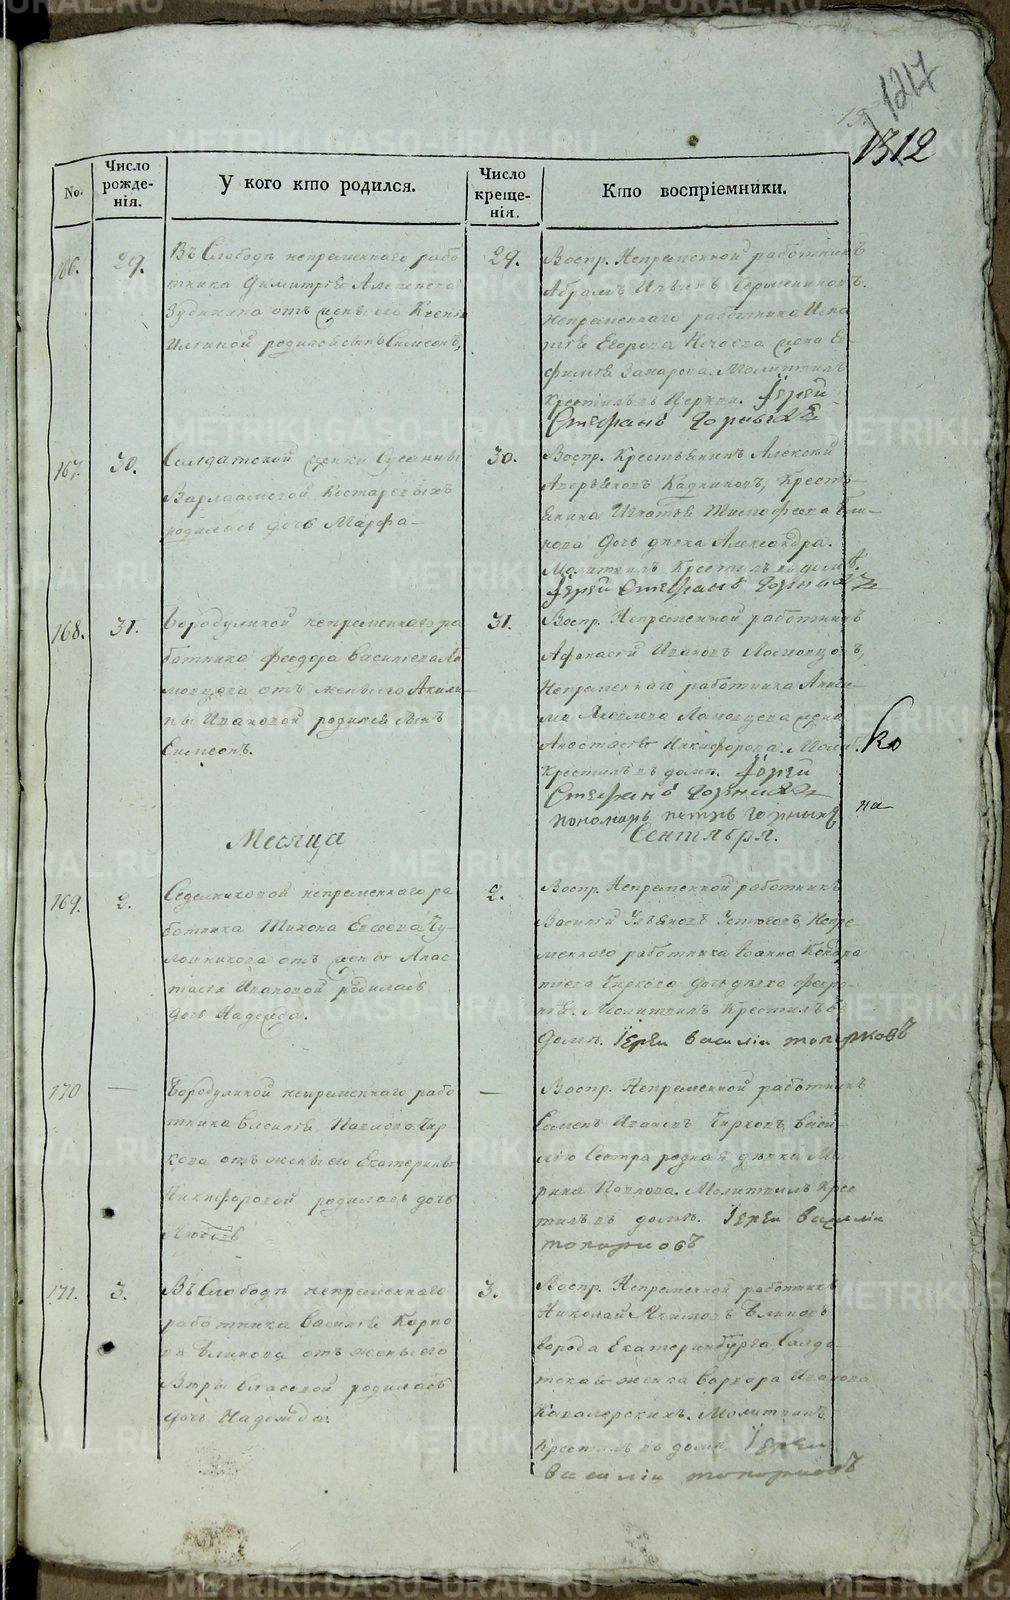 1217
1312
No.
Число рожде-нія.
У кого кто родился.
Число креще-нія.
Кто воспріемники.
166.
29.
Въ Слободѣ непременного рабо
тника Димитрія
Зудихина отъ жены его Ксеніи
родился сынъ Симеонъ,
29.
Воспр. Непременной работникъ
Абрамъ
Непременного работника Игна
тія Егорова жена Ев
фимія Захарова. Молитвилъ
крестилъ въ церкви. Іерей
Стефанъ Горныхъ
167.
30.
Салдатской женки Сусанны
Варлаамовой Костаревыхъ
родилась дочь Марфа-
30.
Воспр. Крестьянинъ Алексей
Аверьяновъ Кадниковъ, Кресть-
янина Игнатья Тимофеева Бли-
нова дочь девка Александра.
Молитвилъ Крестилъ въ домѣ.
Іерей Стефанъ Горныхъ
168.
31.
Бородулиной непременного ра
ботника Феодора Васильева Ло
мовцова отъ жены его Акили-
ны Ивановой родился сынъ
Симеонъ.
31.
Воспр. Непременной работникъ
Афанасій Ивановъ Ломовцовъ,
Непременного работника
Яковлева Ломовцева жена
Анастасія Никифорова. Молит.
крестилъ въ домѣ. Іерей
Стефанъ Горныхъ
пономарь петръ Горныхъ
ко
на
Месяца
Сентября.
169.
2.
Седельниковой непременного ра
ботника Тихона Евсеева Чу-
лошникова отъ жены Анас
тасіи Ивановой родилась
дочь Надежда.
2.
Воспр. Непременной работникъ
Василій Ульяновъ Устюговъ, Непре-
менного работника Іоанна Кондра
тьева Чиркова дочь девка Февро-
нія. Молитвилъ Крестилъ въ
домѣ. Іереи василіи топорковъ
170
—
Бородулиной непременнаго рабо
тника Василія Павлова Чир
кова отъ жены его Екатерины
Никифоровой родилась дочь
Любовь
—
Воспр. Непременной работникъ
Семенъ Ивановъ Чирковъ, Васи-
лію Сестра родная девка Ма
рина Павлова. Молитвилъ Крес
тилъ въ домѣ. Іереи василіи
топорковъ
171.
3.
Въ Слободѣ непременнаго
работника Василія Карпо
ва Блинова отъ жены его
Вѣры Власовой родилась
дочь Надежда.
3.
Воспр. Непременной работникъ
Николай Якимовъ Блиновъ
города Екатеринбурга Салда-
тская женка Варвара Иванова
Кавалерскихъ. Молитвилъ
крестилъ въ домѣ. Іереи
василіи топорковъ
METRIKI.GASO-URAL.RU